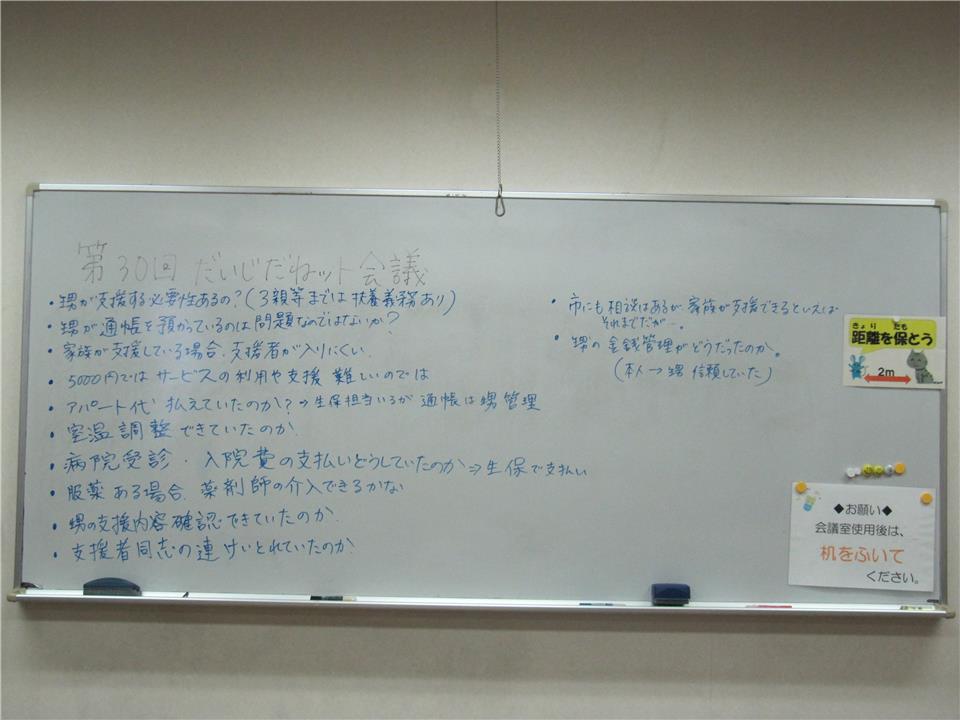 第30回 だいじだねット会議
・甥が支援する必要性あるの?(3親等までは扶養義務あり)
・甥が通帳を預かっているのは問題なのではないか?
・家族が支援している場合、支援者が入りにくい
・5000円ではサービスの利用や支援 難しいのでは
・アパート代 払えていたのか?→生保担当いるが通帳は甥管理
・室温調整できていたのか
・病院受診・入院費の支払いどうしていたのか⇒生保で支払い
・服薬ある場合、薬剤師の介入できるかな
・甥の支援内容確認できていたのか
・支援者同志の連けいとれていたのか
・市にも相談はあるが家族が支援できるといえば
それまでだが…。
・甥の金銭管理がどうだったのか。
(本人→甥 信頼していた)
きょり たも
距離を保とう
2m
◆お願い◆
会議室使用後は、
机をふいて
ください。